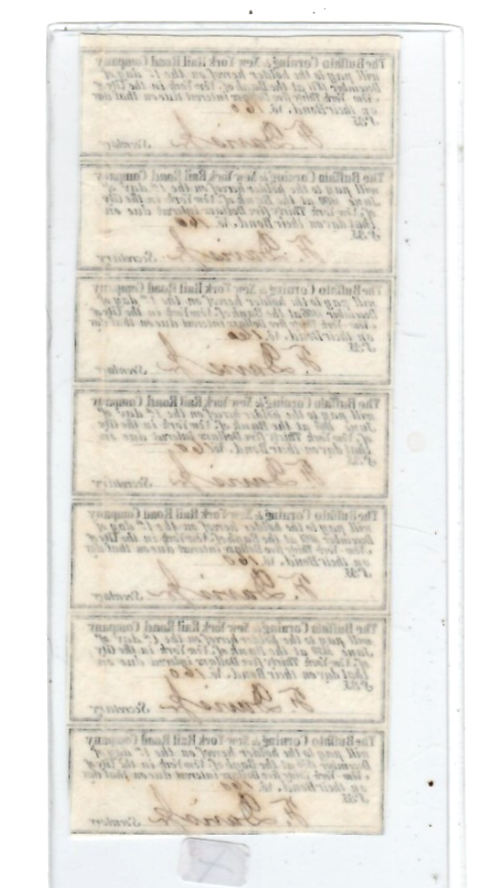 The Buffalo Corning & New York Rail Road Company
will pay to the holder hereof on the 1st day of
December at the Bank of New York in the City
New York Thirty five Dollars interest due on that day
on their Bond. No. 160
$35.
Secretary
The Buffalo Corning & New York Rail Road Company
will pay to the holder hereof on the 1st day of
June at the Bank of New York in the City
of New York Thirty five Dollars interest due on
that day on their Bond. No. 160
$35.
Secretary
The Buffalo Corning & New York Rail Road Company
will pay to the holder hereof on the 1st day of
December at the Bank of New York in the City of
New York Thirty five Dollars interest due on that day
on their Bond. No. 160
$35.
Secretary
The Buffalo Corning & New York Rail Road Company
will pay to the holder hereof on the 1st day of
June at the Bank of New York in the City
of New York Thirty five Dollars interest due on
that day on their Bond. No. 160
$35.
Secretary
The Buffalo Corning & New York Rail Road Company
will pay to the holder hereof on the 1st day of
December at the Bank of New York in the City of
New York Thirty five Dollars interest due on that day
on their Bond. No. 160
$35.
Secretary
The Buffalo Corning & New York Rail Road Company
will pay to the holder hereof on the 1st day of
June at the Bank of New York in the City
of New York Thirty five Dollars interest due on
that day on their Bond. No. 160
$35.
Secretary
The Buffalo Corning & New York Rail Road Company
will pay to the holder hereof on the 1st day of
December at the Bank of New York in the City of
New York Thirty five Dollars interest due on that day
on their Bond. No. 160
$35.
Secretary